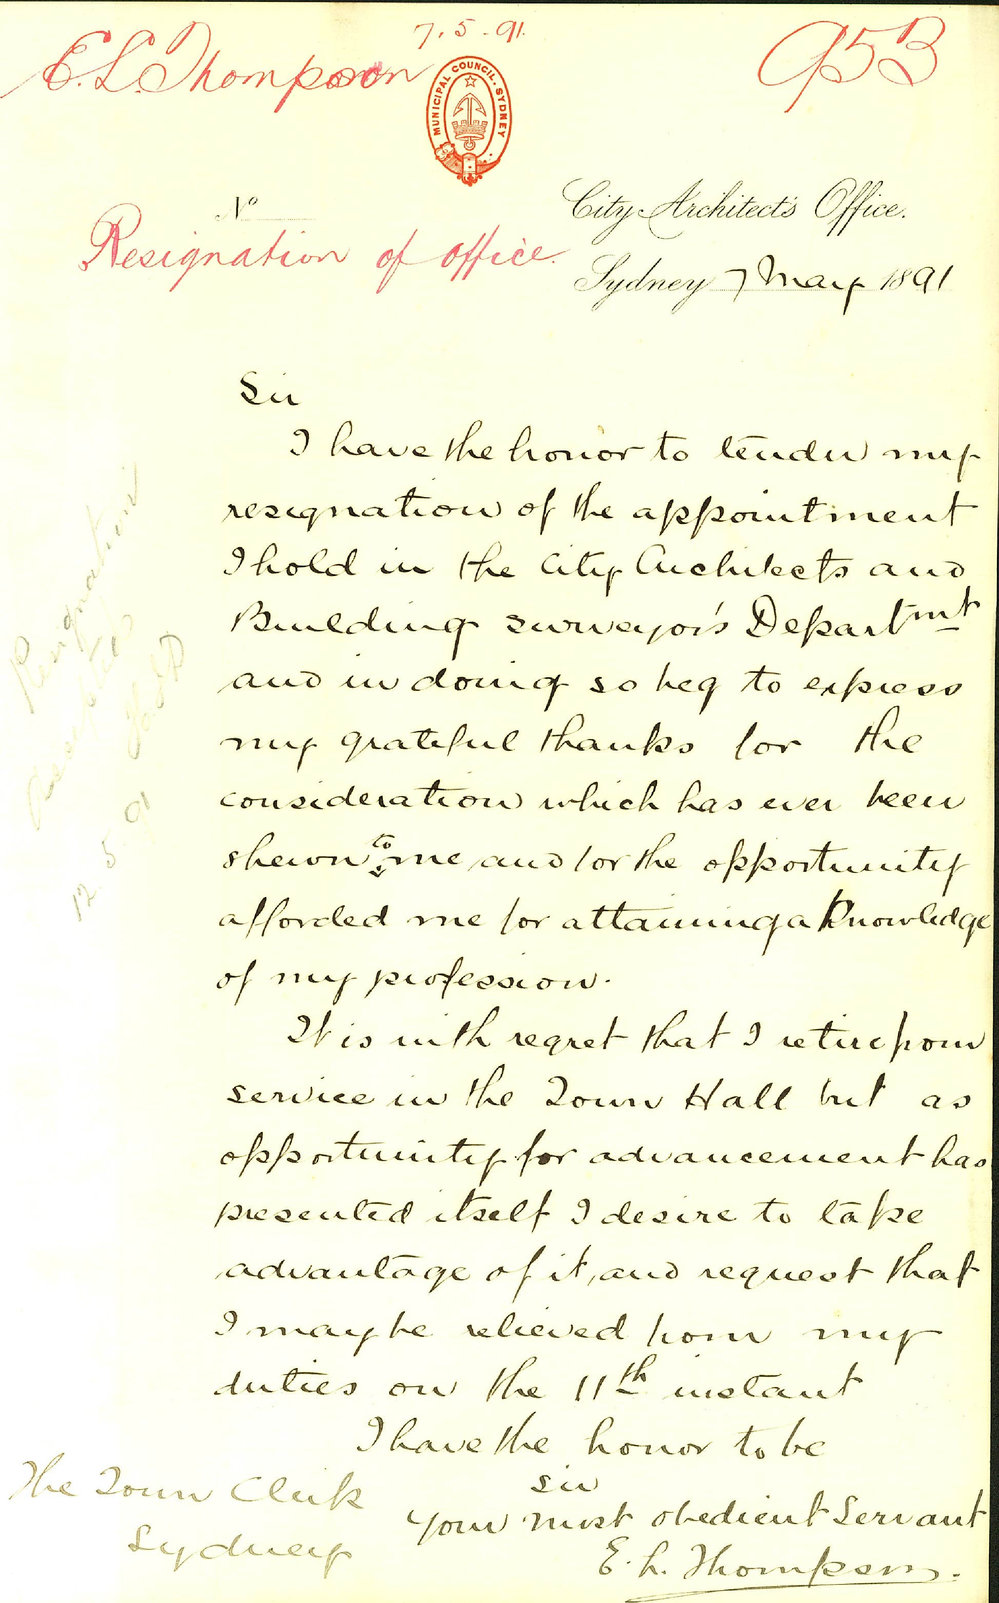 7.5.91.
E. L. Thompson
953
MUNICIPAL COUNCIL. SYDNEY
No
City Architect's Office.
Resignation of office.
Sydney 7 May 1891
Sir
I have the honor to tender my
resignation of the appointment
I hold in the City Architects and
Building surveyor's Departmnt
and in doing so beg to express
my grateful thanks for the
consideration which has ever been
shewn to me and for the opportunity
afforded me for attaining a knowledge
of my profession.
It is with regret that I retire from
service in the Town Hall but as
opportunity for advancement has
presented itself I desire to take
advantage of it, and request that
I may be relieved from my
duties on the 11th instant
I have the honor to be
Sir
your most obedient Servant
E. L. Thompson.
The Town Clerk
Sydney
Resignation
12.5.91